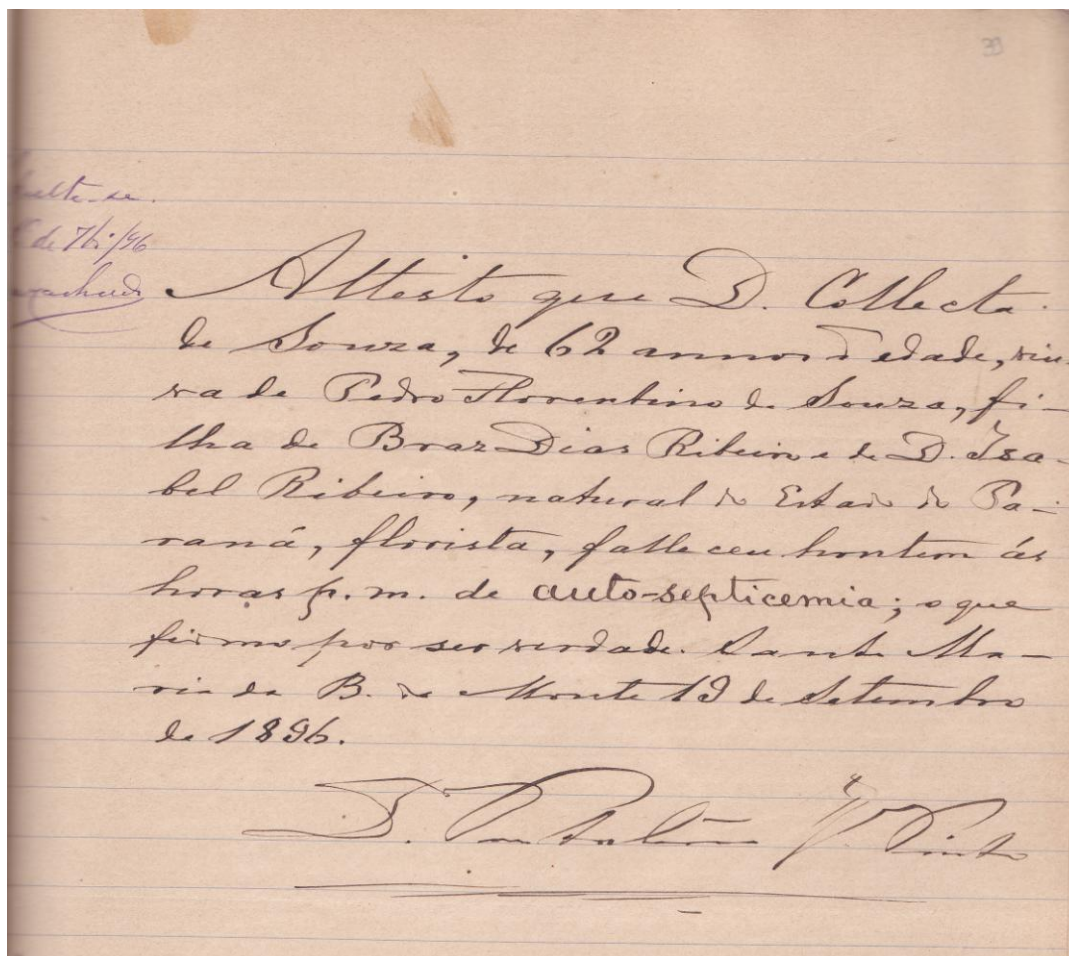 39
de 7bro/96
Attesto que D. Collecta
de Souza, de 62 annos d edade, viu-
va de Pedro Florentino de Souza, fi-
lha de Braz Dias Ribeiro e de D. Isa-
bel Ribeiro, natural do Estado do Pa-
raná, florista, falleceu hontem ás
horas p. m. de auto-septicemia; o que
firmo por ser verdade. Santa Ma-
ria da B. do Monte 19 de Setembro
de 1896.
D. Pantaleão J. Pinto